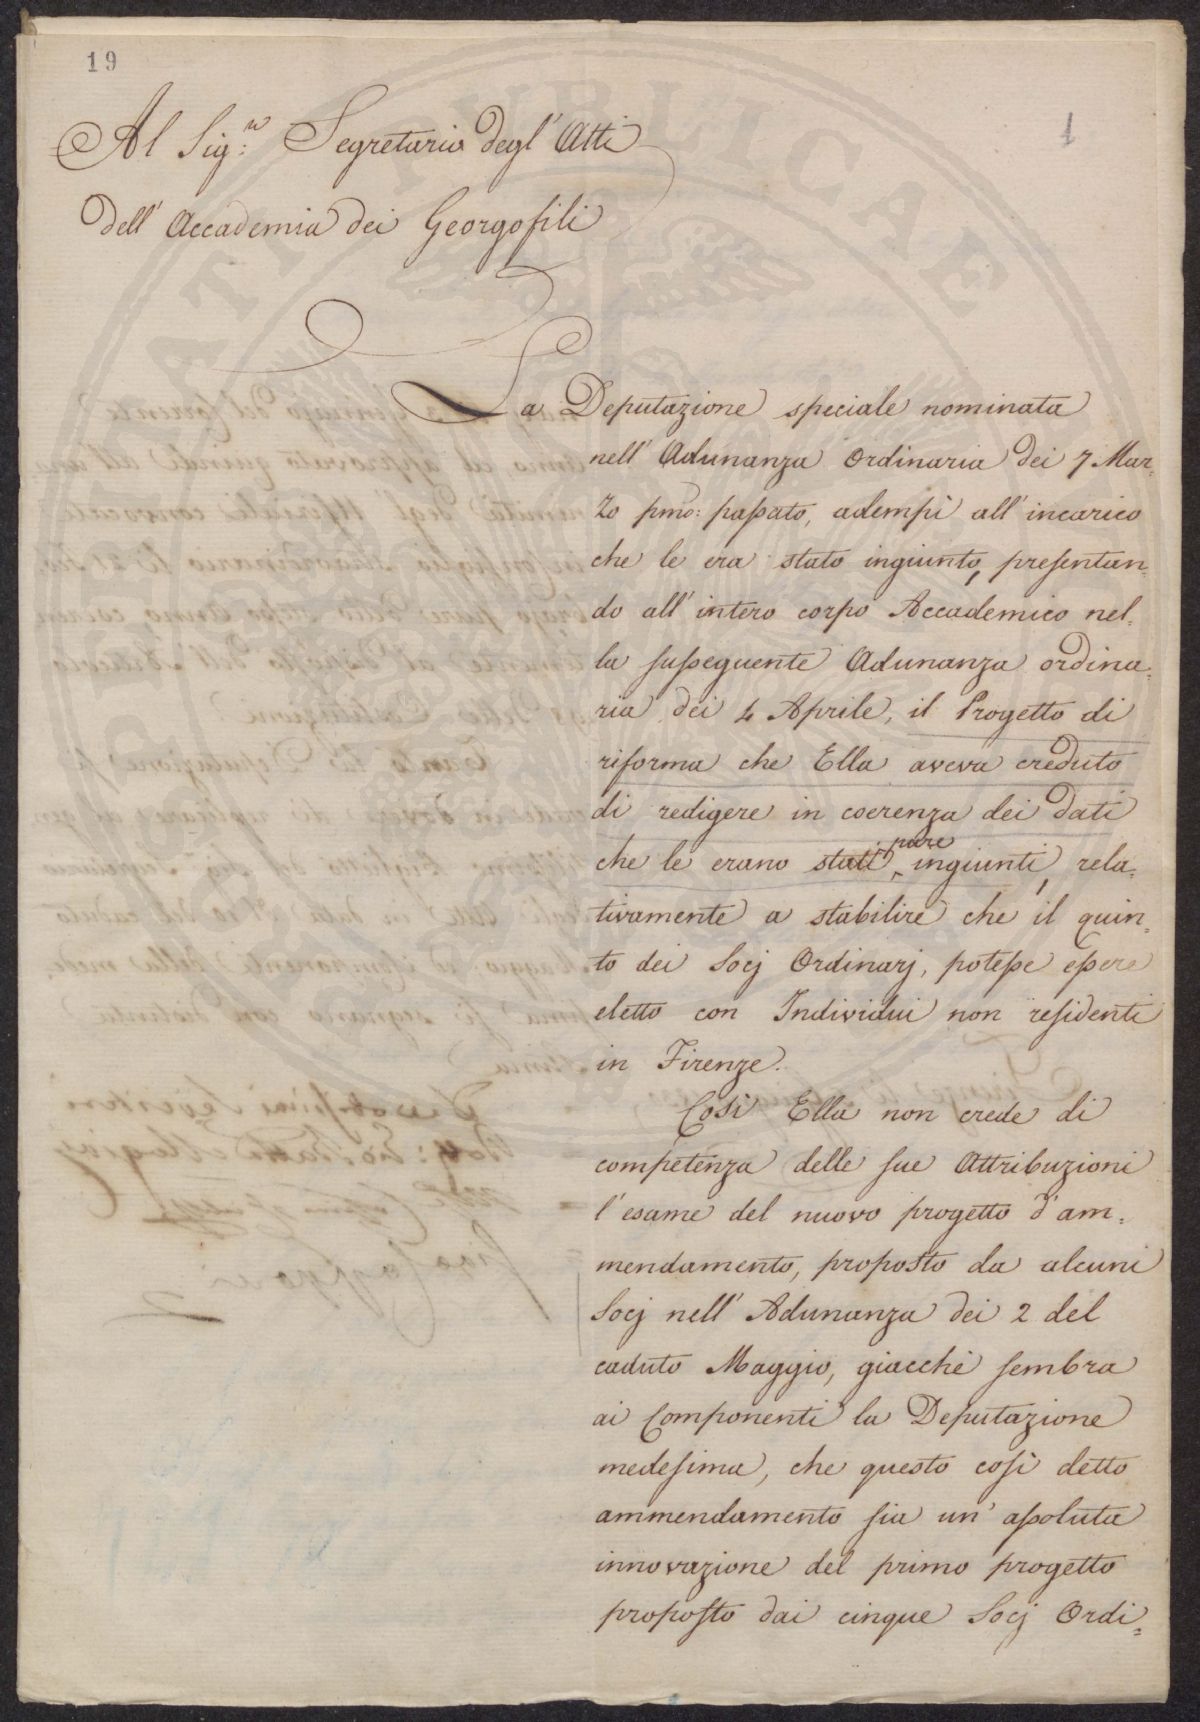 19
1
Al Sig.r Segretario degl' Atti
dell' Accademia dei Georgofili
La Deputazione speciale nominata
nell' Adunanza Ordinaria dei 7 Mar=
zo pmo: passato, adempì all' incarico
che le era stato ingiunto, presentan=
do all' intero corpo Accademico nel=
la susseguente Adunanza ordina=
ria dei 4 Aprile, il Progetto di
riforma che Ella aveva creduto
di redigere in coerenza dei dati
che le erano stati pure ingiunti, rela=
tivamente a stabilire che il quin=
to dei Socj Ordinarj, potesse essere
eletto con Individui non residenti
in Firenze.
Così Ella non crede di
competenza delle sue Attribuzioni
l' esame del nuovo progetto d' am=
mendamento, proposto da alcuni
Socj nell' Adunanza dei 2 del
caduto Maggio, giacchè sembra
ai Componenti la Deputazione
medesima, che questo così detto
ammendamento sia un' assoluta
innovazione del primo progetto
proposto dai cinque Socj Ordi=